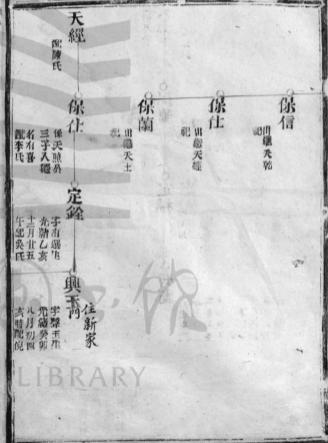 保信
出繼天乾
祀
保仕
出繼天經
祀
保蘭
出繼天士
祀
天經
配陳氏
保仕
係天
三子入繼
名有喜
配李氏
定銓
字有
光緒乙亥
十二月廿五
午配吳氏
興玉
住新家
字聲玉生
光緒癸卯
八月初四
亥時配倪
LIBRARY